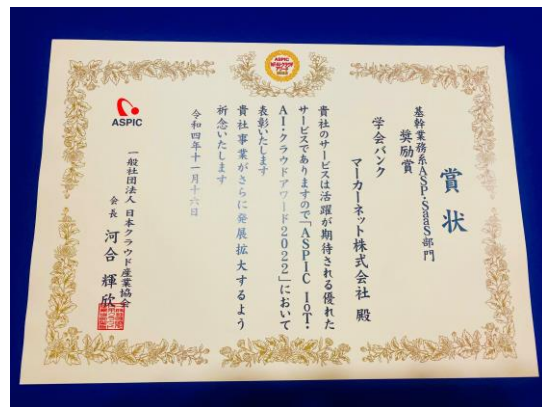 賞状
基幹業務系ASP・SaaS部門
奨励賞
学会バンク
マーカーネット株式会社 殿
貴社のサービスは活躍が期待される優れた
サービスでありますので「ASPIC IoT・
AI・クラウドアワード2022」において
表彰いたします
貴社事業がさらに発展拡大するよう
祈念いたします
令和四年十一月十六日
ASPIC
一般社団法人 日本クラウド産業協会
会長 河合 輝欣